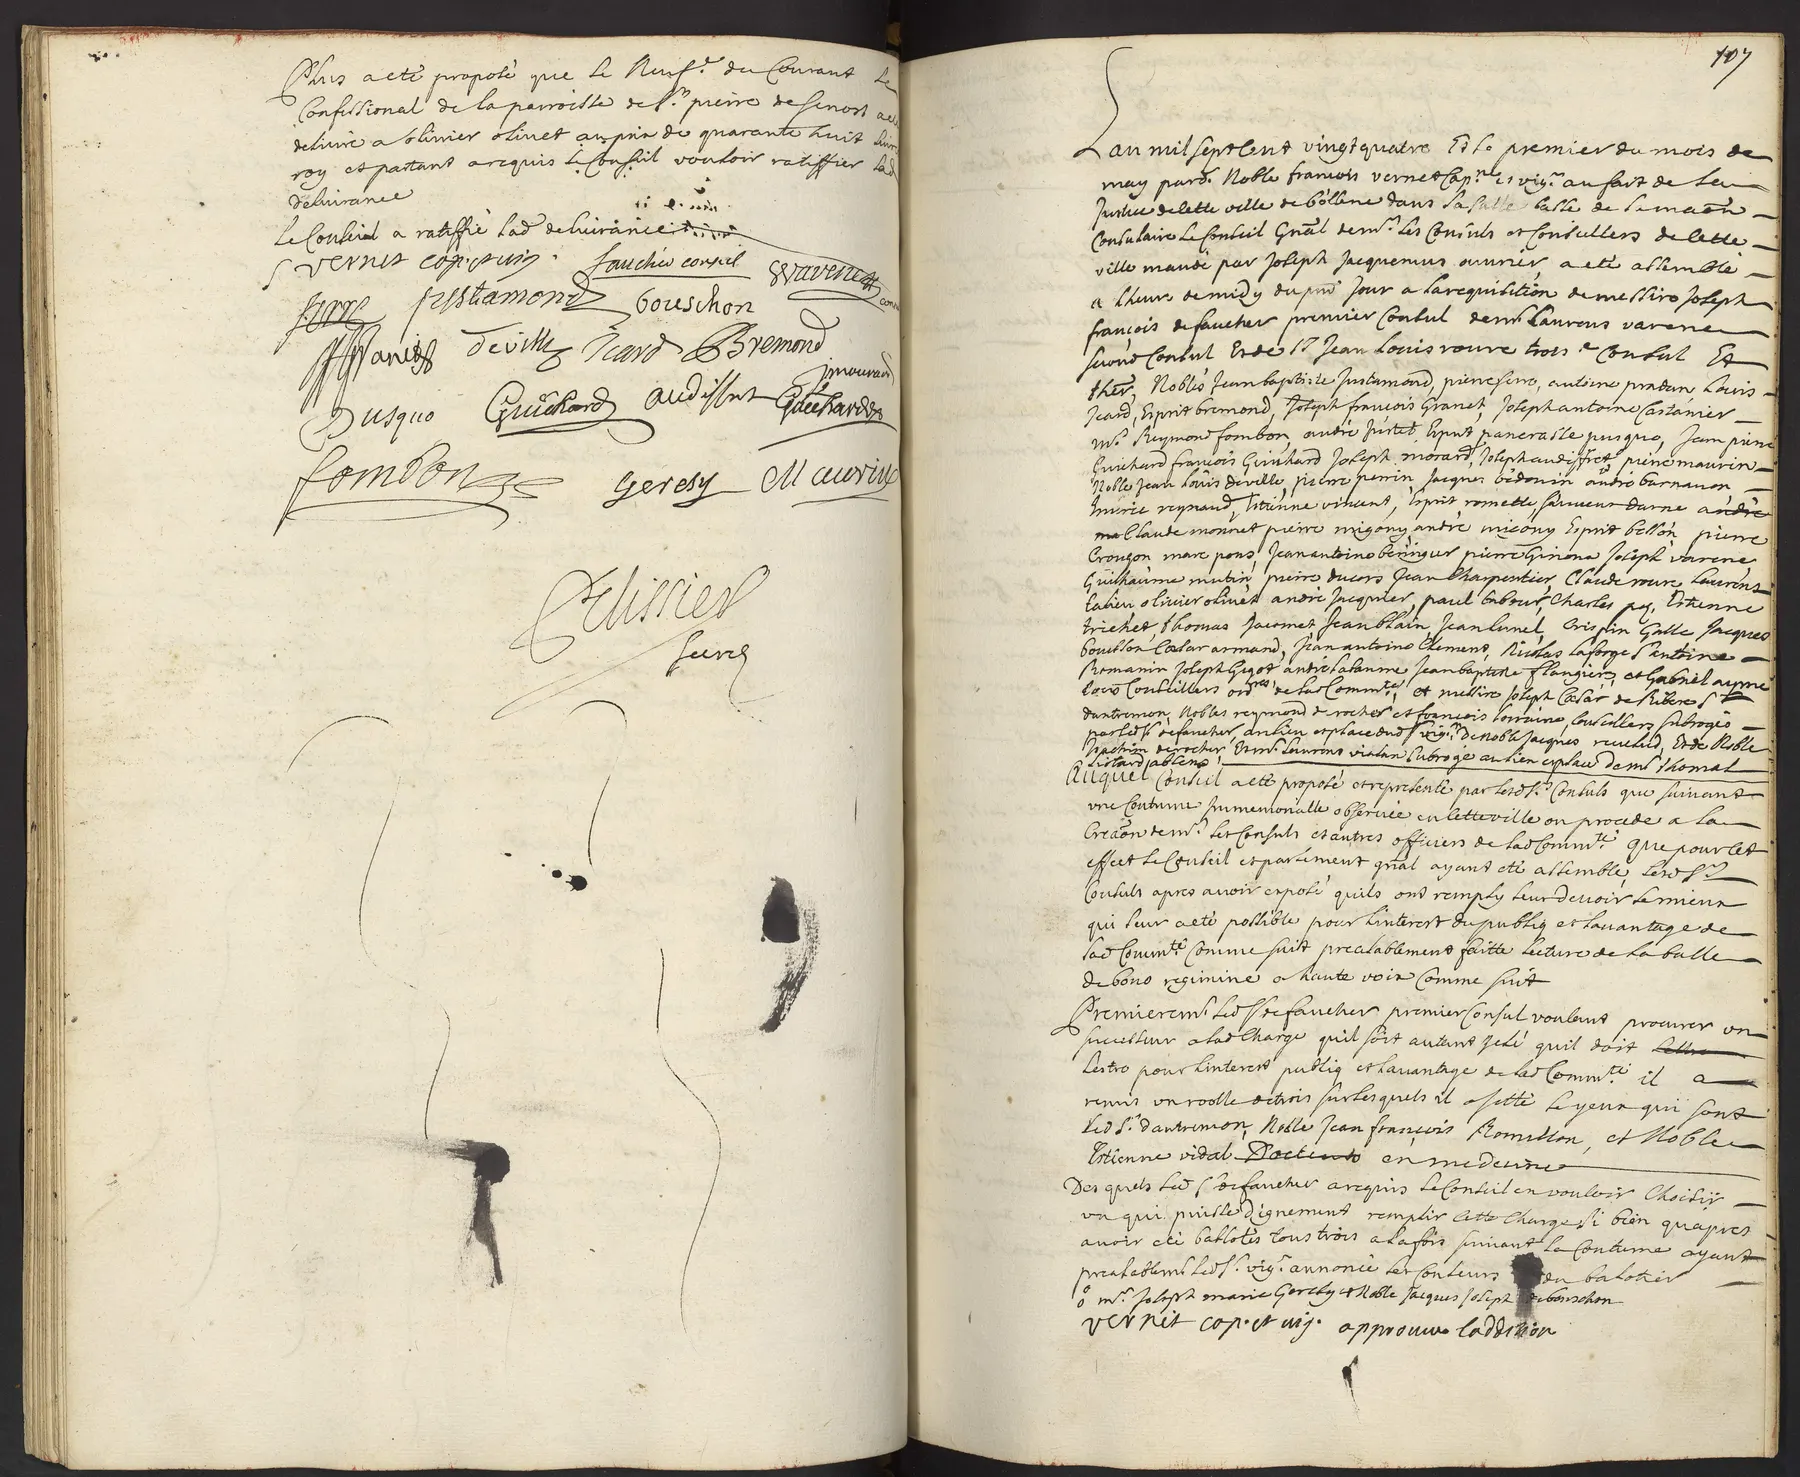 Plus a eté proposé que le Neufe. du Courant le
Confessional de la parroisse de St. pierre de senos a eté
delivré a olivier olivet au prix de quarante huit livres
roy et partant a requis le Conseil vouloir ratiffier lad
delivrance
Le Conseil a ratiffié lad delivrance
Vernet cap. et vig.
faucher consul
L varenes
Serre
Justamond
bouschon
deville
Icard
Bremond
J mourard
Pusquo
Guichard
audiffret
Guichard
fombon
Geresy
Maurin
Pelissier
secre
107
Lan mil sept cent vingt quatre Et le premier du mois de
may pard. Noble francois vernet Cap.ne et vig.r au fait de la
Justice de cette ville de bollene dans la salle basse de la maon
Consulaire le Conseil Gnal de mrs. les Consuls et Conseillers de cette
ville mandé par Joseph Jacquemus ouvrier a eté assemblé
a lheure de midy du pnt Jour a la requisition de messire Joseph
francois de faucher premier Consul de mr. Laurens varene
second Consul Et de Sr. Jean Louis roure trois.e Consul Et
Nobles Jean baptiste Justamond, pierre serre, antoine pradan, Louis
Icard, Esprit bremond, Joseph francois Granet, Joseph antoine Castanier
mrs. Reymond fombon, andré Juret, Esprit pancrasse pusquo, Jean pierre
Guichard francois Guichard Joseph morard, Joseph audiffret, pierre maurin
Noble Jean Louis deville, pierre perrin, Jacques bedouin andré barnavon
reynaud, Estienne vincent, Esprit romette, sauveur darne andre
Claude monnet pierre migony, andré migony Esprit bellon pierre
Crouzon marc pons, Jean antoine beringuer pierre Ginoux Joseph varene
Guilhaume mutin, pierre ducors Jean Charpentier, Claude roure Laurens
olivier olivet andré Jacquier, paul tabour, Charles pey, Estienne
trichet, thomas Jacomet Jean blain Jean lunel, Crispin Galle Jacques
bouillon Cæsar armand, Jean antoine Clement, Nicolas laforge Santoine
Romanin Joseph Gigot andré labaume Jean baptiste flangier, et Gabriel ayme
tous Conseillers ordres de lad Commté, et messire Joseph Cæsar de Ribere Sr
dantremon, Nobles reymond de rocher et francois lorraine, Conseillers subrogés
par led Sr defaucher, au lieu et place dud Sr vig.r de Noble Jacques revelud, Et de Noble
Joachim de rocher, Et mr. Laurens violan subrogé au lieu et place de mr thomas
listard, absens,
Auquel Conseil a eté proposé et representé par lesd Srs. Consuls que suivant
une Coutume Immemorialle observée en cette ville on procede a la
Creaon de mrs. les Consuls et autres officiers de lad Commté. que pour cet
effect le Conseil et parlement gnal ayant eté assemblé, lesd Srs
Consuls apres avoir exposé quils ont remply leur devoir le mieux
qui leur a eté possible pour linterest du publiq et lavantage de
lad Commté Comme suit prealablement faitte lecture de la bulle
de bono regimine a haute voix Comme suit
Premierem.t led Sr de faucher premier Consul voulant procurer un
successeur a lad Charge quil soit autant zelé quil doit
lestre pour linterest publiq et lavantage de lad Commté. il a
remis un roolle de trois sur lesquels il a jetté le yeux qui sont
led Sr. dantremon, Noble Jean francois Romillon, et Noble
Estienne vidal Docteur en medecine
Des quels led Sr de faucher a requis le Conseil en vouloir Choisir
un qui puisse dignement remplir cette Charge, si bien quapres
avoir eté ballotés tous trois a la fois suivant la Coutume ayant
prealablem.t led Sr. vig.r annoncé les Couleurs du balotier
mr. Joseph marie Geresy et Noble Jacques Joseph de bouschon
Vernet cap. et vig. approuve laddition